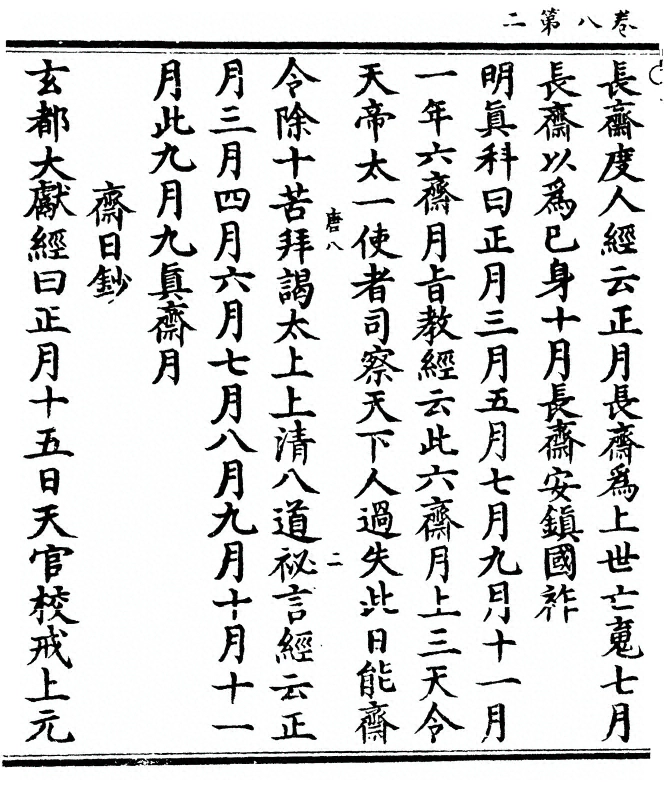 卷八第二
長齋度人經云正月長齋爲上世亡䰟七月
長齋以爲已身十月長齋安鎮國祚
明眞科曰正月三月五月七月九月十一月
一年六齋月旨教經云此六齋月上三天令
天帝太一使者司察天下人過失此日能齋
唐八
二
令除十苦拜謁太上上清八道祕言經云正
月三月四月六月七月八月九月十月十一
月此九月九眞齋月
齋日鈔
玄都大獻經曰正月十五日天官校戒上元